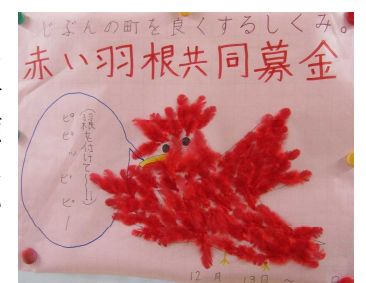 じぶんの町を良くするしくみ。
赤い羽根共同募金
(羽根を付けてー!!)
ピピッピピー
12月 13日 ～